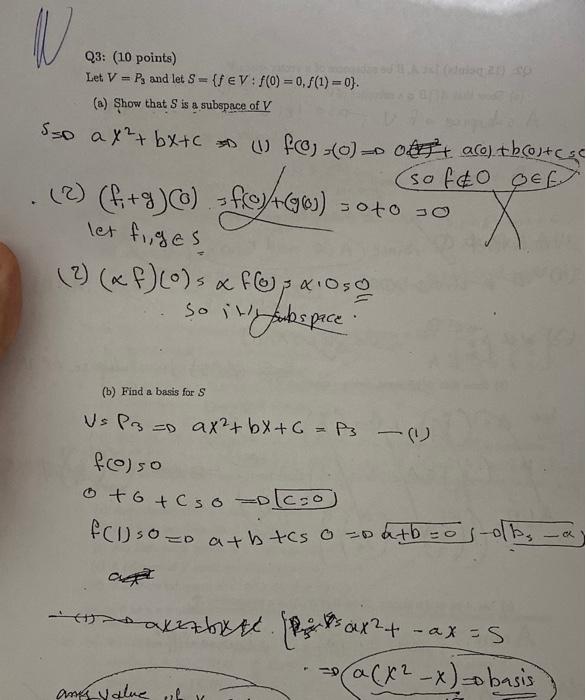 Q3: (10 points)
Let V = P₃ and let S = {f ∈ V : f(0) = 0, f(1) = 0}.
(a) Show that S is a subspace of V
S => ax² + bx + c => (1) f(0) = (0) => 0 + a(0) + b(0) + c
so f ∉ 0 0 ∈ f
(2) (f₁+g)(0) = f(0) + (g(0)) = 0+0 = 0
let f₁, g ∈ S
(2) (αf)(0) = αf(0) = α·0 = 0
so it's subspace.
(b) Find a basis for S
V = P₃ => ax² + bx + c = P₃ — (1)
f(0) = 0
0 + 0 + c = 0 => c = 0
f(1) = 0 => a + b + c = 0 => a+b = 0 , b = -a
ax² + -ax = S
=> a(x² - x) => basis
value of